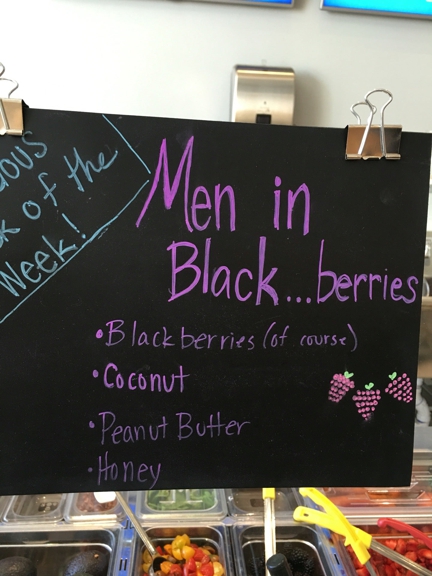 of the
Week!
Men in
Black...berries
•Blackberries (of course)
•Coconut
•Peanut Butter
•Honey